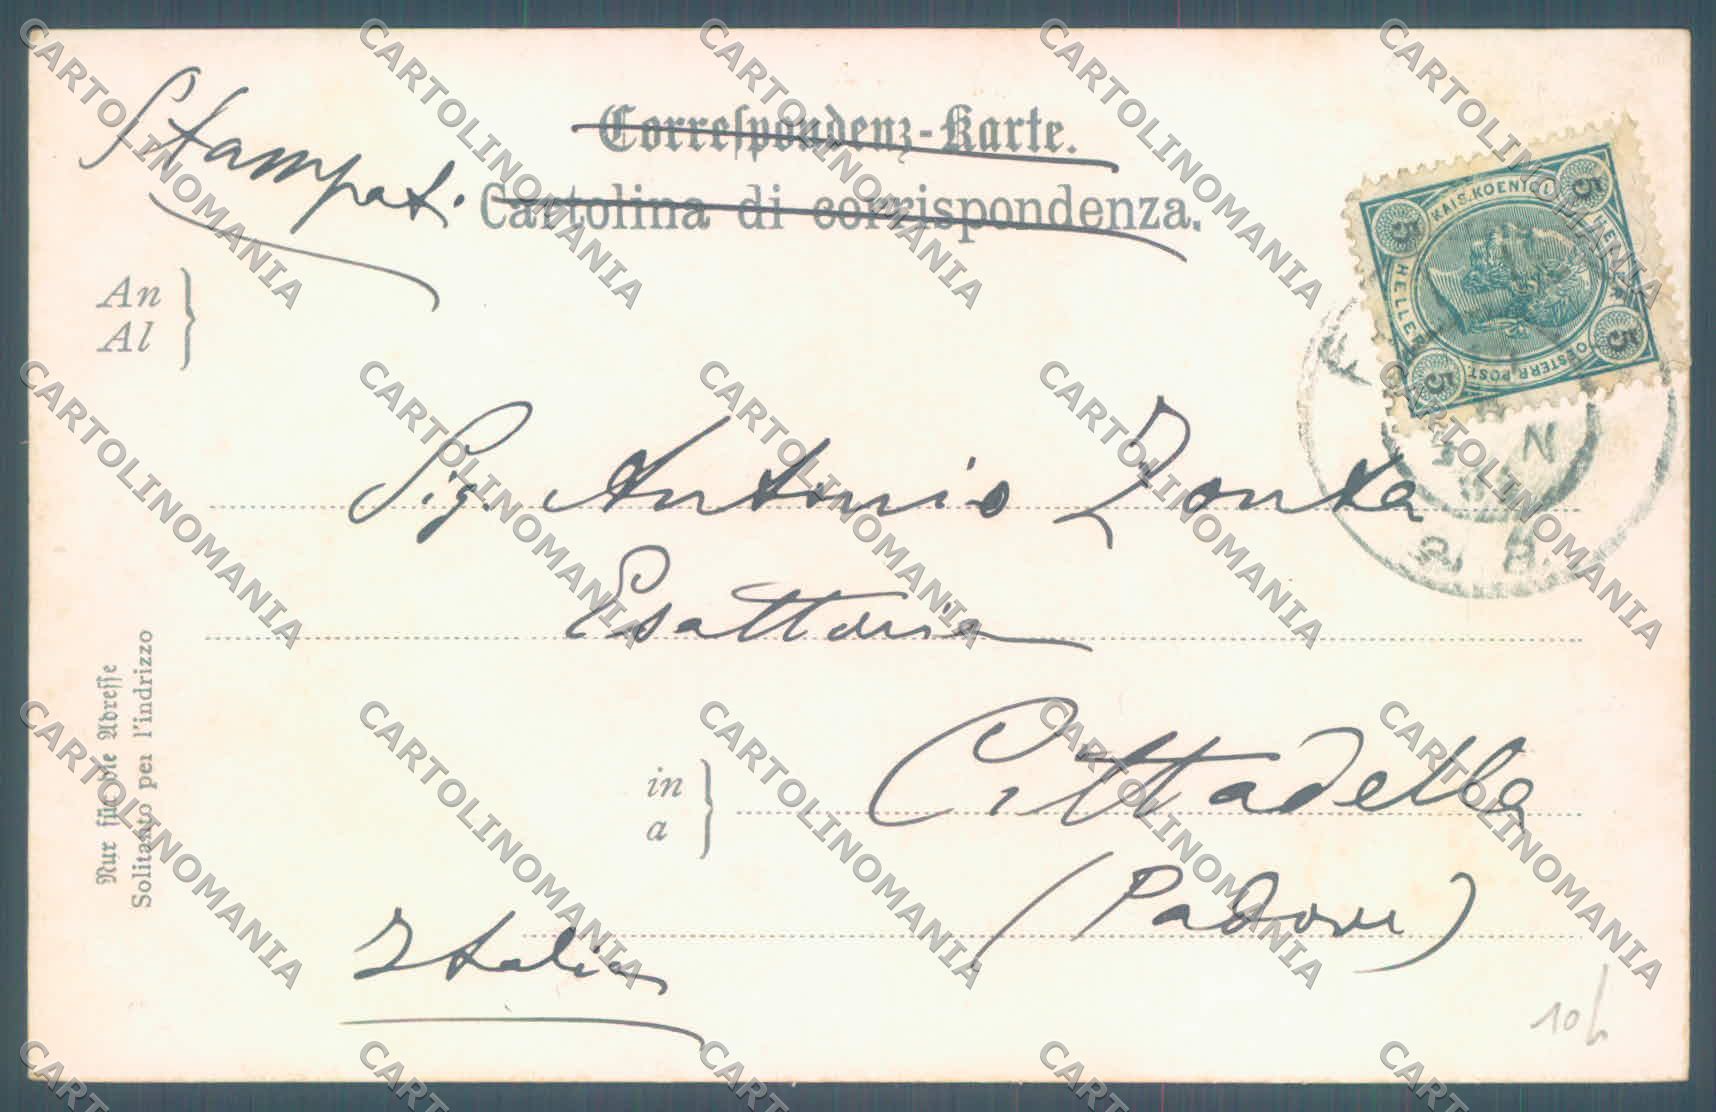 Stampat.
Correspondenz-Karte.
Cartolina di corrispondenza.
An
Al
KAIS. KOENIGL
OESTERR POST
HELLER
HELLER
5
5
5
5
Sig. Antonio Zonta
Esattoria
in
a
Cittadella
(Padova)
Italia
Nur für die Adresse
Solitanto per l'indrizzo
10
CARTOLINOMANIA